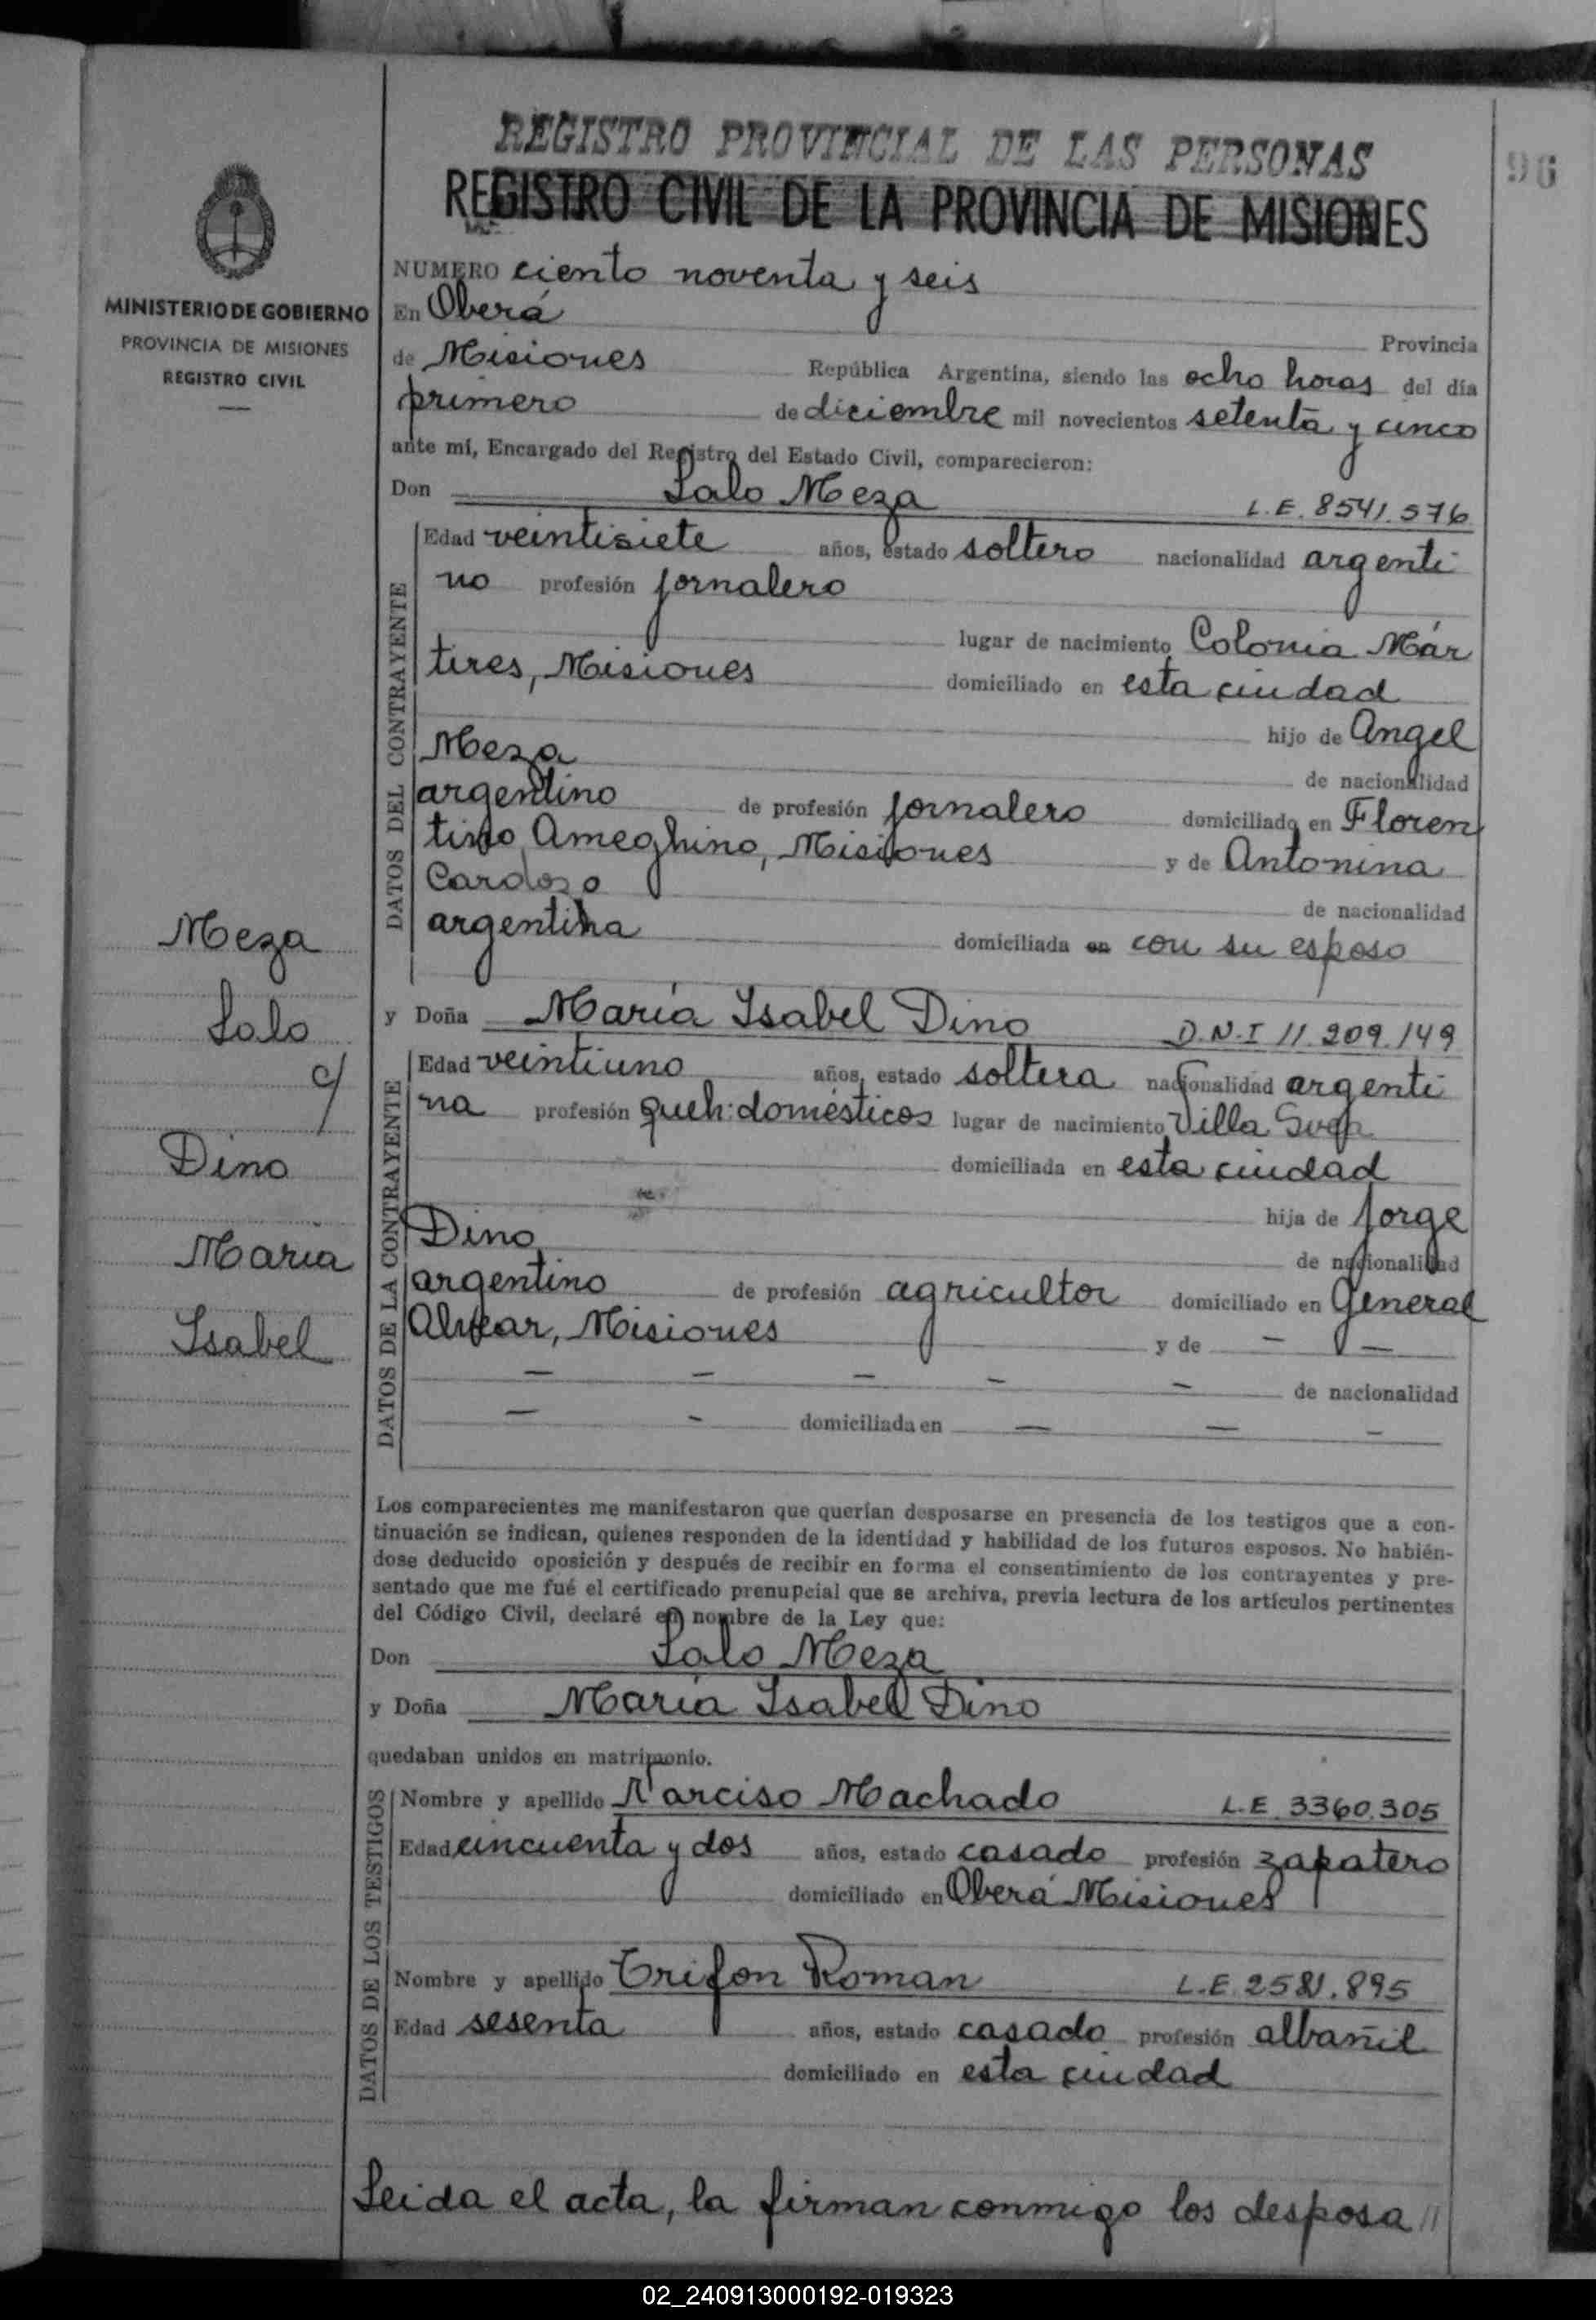 REGISTRO PROVINCIAL DE LAS PERSONAS
96
REGISTRO CIVIL DE LA PROVINCIA DE MISIONES
MINISTERIO DE GOBIERNO
PROVINCIA DE MISIONES
REGISTRO CIVIL
NUMERO ciento noventa y seis
En Oberá
Provincia
de Misiones República Argentina, siendo las ocho horas del día
primero de diciembre mil novecientos setenta y cinco
ante mí, Encargado del Registro del Estado Civil, comparecieron:
Don Lalo Meza L.E. 8541.576
DATOS DEL CONTRAYENTE
Edad veintisiete años, estado soltero nacionalidad argenti
no profesión jornalero
lugar de nacimiento Colonia Már
tires, Misiones domiciliado en esta ciudad
hijo de Angel
Meza
de nacionalidad
argentino de profesión jornalero domiciliado en Floren
tino Ameghino, Misiones y de Antonina
Cardozo
de nacionalidad
argentina domiciliada en con su esposo
Meza
Lalo
c/
Dino
Maria
Isabel
y Doña María Isabel Dino D.N.I 11.209.149
DATOS DE LA CONTRAYENTE
Edad veintiuno años, estado soltera nacionalidad argenti
na profesión queh: domésticos lugar de nacimiento Villa Svea
domiciliada en esta ciudad
hija de Jorge
Dino
de nacionalidad
argentino de profesión agricultor domiciliado en General
Alvear, Misiones y de — —
— — — — — de nacionalidad
— - domiciliada en — — —
Los comparecientes me manifestaron que querían desposarse en presencia de los testigos que a con-
tinuación se indican, quienes responden de la identidad y habilidad de los futuros esposos. No habién-
dose deducido oposición y después de recibir en forma el consentimiento de los contrayentes y pre-
sentado que me fué el certificado prenupcial que se archiva, previa lectura de los artículos pertinentes
del Código Civil, declaré en nombre de la Ley que:
Don Lalo Meza
y Doña María Isabel Dino
quedaban unidos en matrimonio.
DATOS DE LOS TESTIGOS
Nombre y apellido Narciso Machado L.E. 3360.305
Edad cincuenta y dos años, estado casado profesión zapatero
domiciliado en Oberá Misiones
Nombre y apellido Trifon Roman L.E. 2581.895
Edad sesenta años, estado casado profesión albañil
domiciliado en esta ciudad
Leida el acta, la firman conmigo los desposa//
02_240913000192-019323